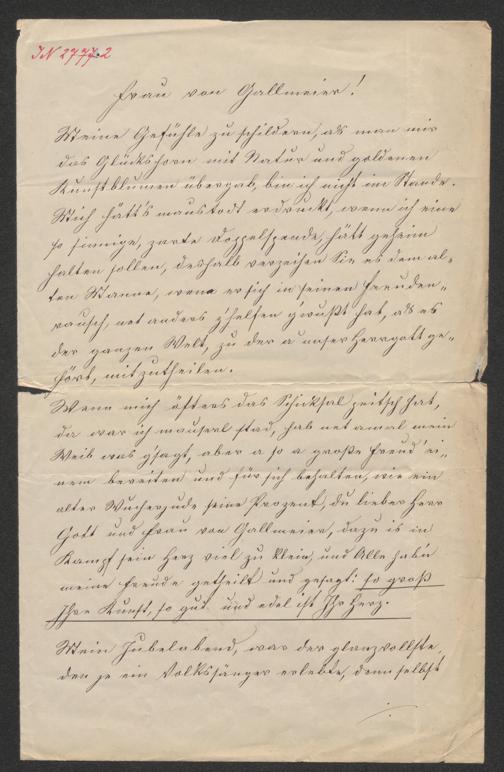 IN 27772
Frau von Gallmeier!
Meine Gefühle zu schildern, als man mir
das Glückshorn mit Natur und goldenen
Kunstblumen übergab, bin ich nicht im Stande.
Mich hätt's maustodt erdruckt, wenn ich eine
so sinnige, zarte Doppelspende, hätt geheim
halten sollen, deshalb verzeihen Sie es dem al-
ten Manne, wenn er sich in seinen Freuden-
rausch, net anders z'helfen g'wußt hat, als es
der ganzen Welt, zu der a unser Herrgott ge-
hört, mitzutheilen.
Wenn mich öfters das Schicksal peitscht hat,
da war ich mauserl stad, hab net amal mein
Weib was g'sagt, aber a so a große Freud' ei-
nem bereiten und für sich behalten, wie ein
alter Wucherjude seine Prozent, du lieber Herr
Gott und Frau von Gallmeier, dazu is in
Kampf sein Herz viel zu klein, und Alle hab'n
meine Freude getheilt und gesagt: so groß
Ihre Kunst, so gut und edel ist Ihr Herz.
Mein Jubelabend, war der glanzvollste,
den je ein Volkssänger erlebte, denn selbst